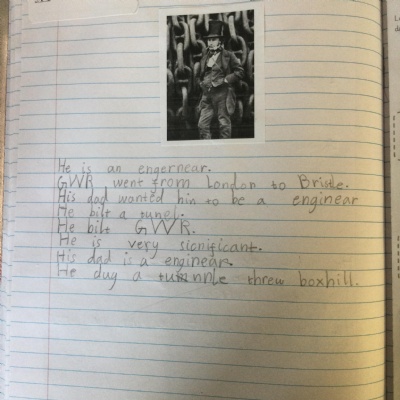 He is an engernear.
GWR went from London to Bristle.
His dad wanted hin to be a enginear
He bilt a tunel.
He bilt GWR.
He is very sionificant.
His dad is a enginear.
He dug a tunnle threw boxhill.